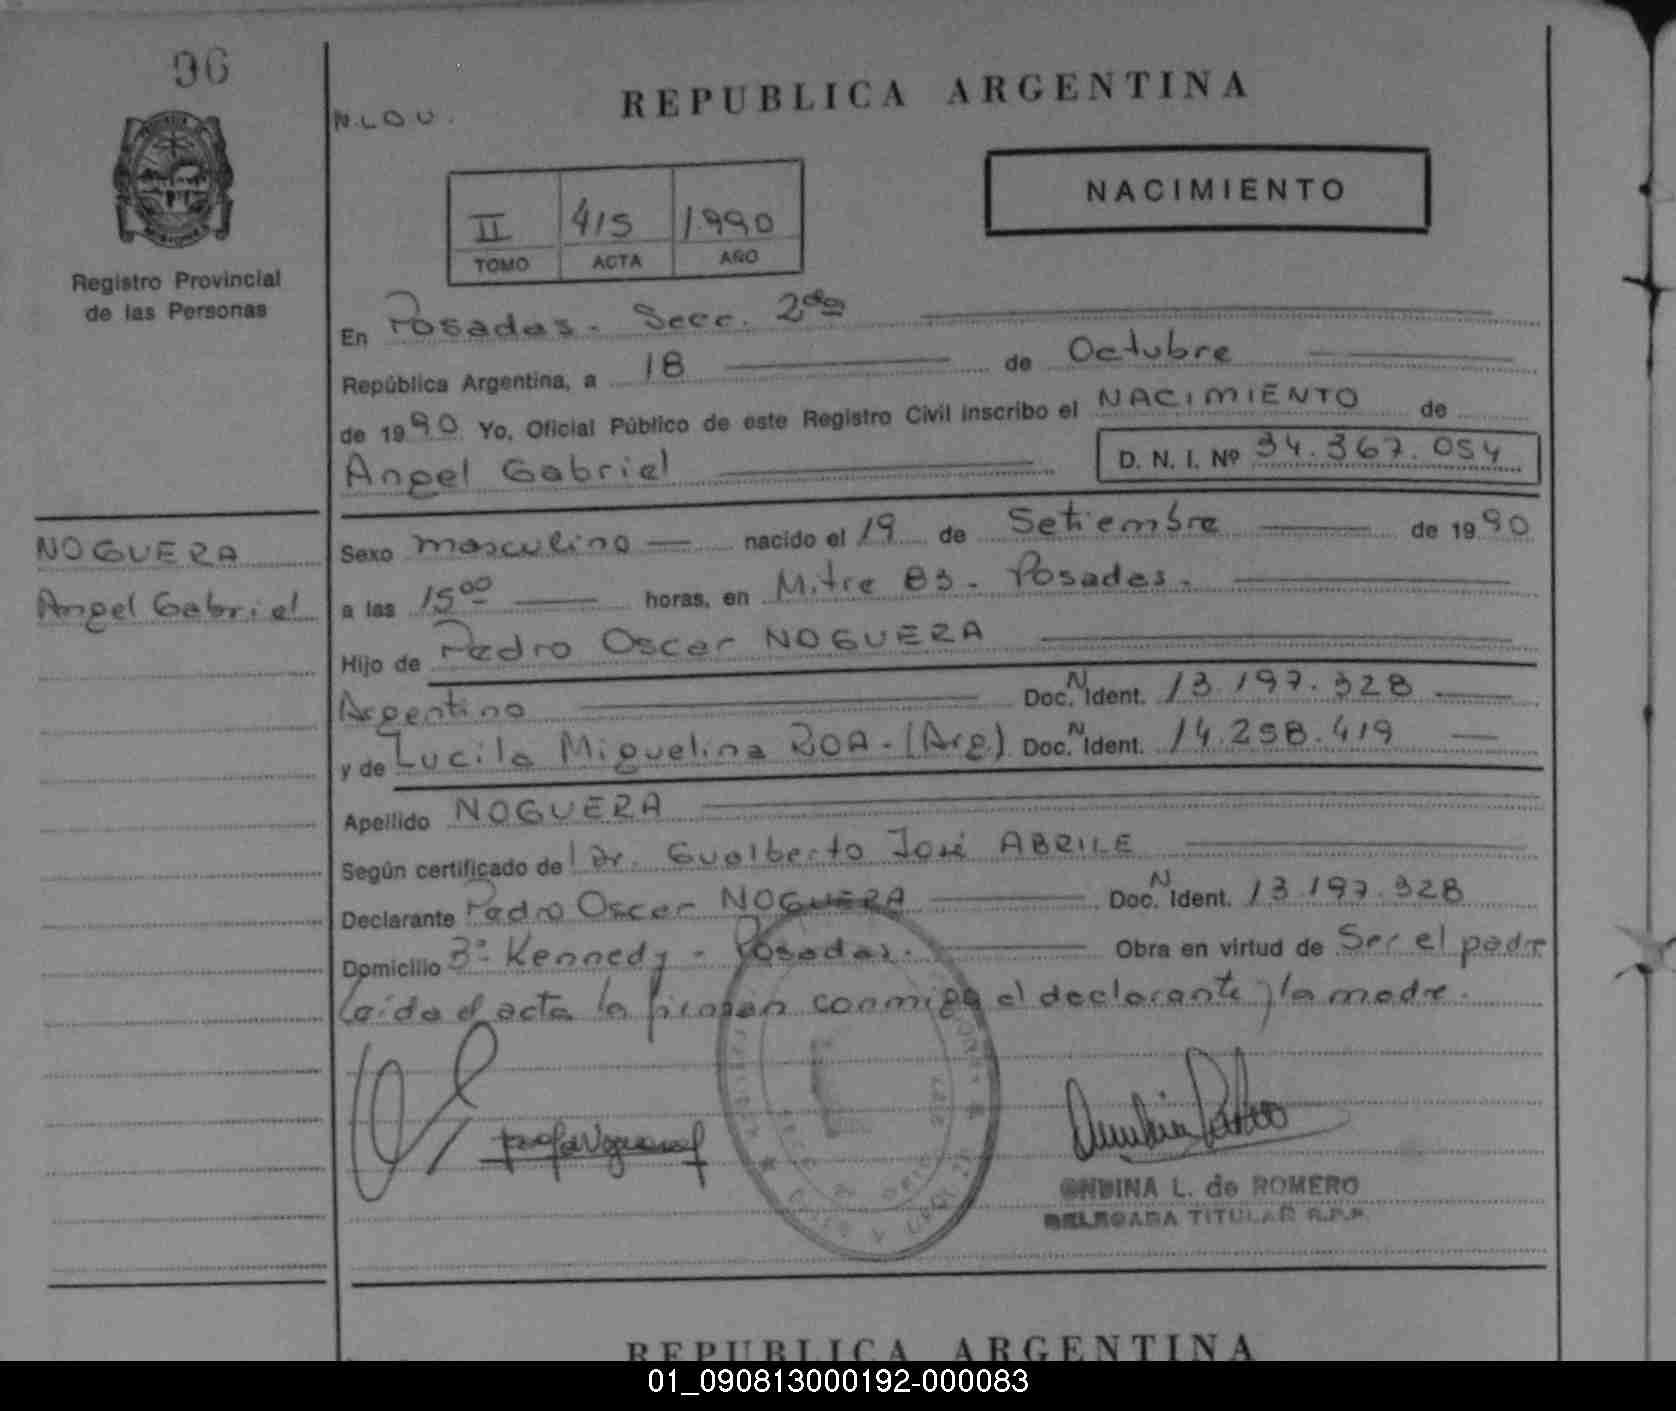 96
N.LOU.
REPUBLICA ARGENTINA
NACIMIENTO
II 415 1.990
TOMO ACTA AÑO
Registro Provincial
de las Personas
En Posadas - Secc. 2da
República Argentina, a 18 de Octubre
de 1990 Yo, Oficial Público de este Registro Civil inscribo el NACIMIENTO de
Angel Gabriel D. N. I. Nº 34.367.054
NOGUERA
Angel Gabriel
Sexo masculino nacido el 19 de Setiembre de 1990
a las 15 00 horas, en Mitre 83 - Posadas -
Hijo de Pedro Oscar NOGUERA
Argentino Doc. N Ident. 13.197.328
y de Lucila Miguelina ROA - (Arg) Doc. N Ident. 14.258.419
Apellido NOGUERA
Según certificado del Dr. Gualberto José ABRILE
Declarante Pedro Oscar NOGUERA Doc. N Ident. 13.197.328
Domicilio Bº Kennedy - Posadas. Obra en virtud de Ser el padre
Leida el acta la firman conmigo el declarante y la madre.
ONDINA L. de ROMERO
DELEGADA TITULAR R.P.P.
REPUBLICA ARGENTINA
01_090813000192-000083